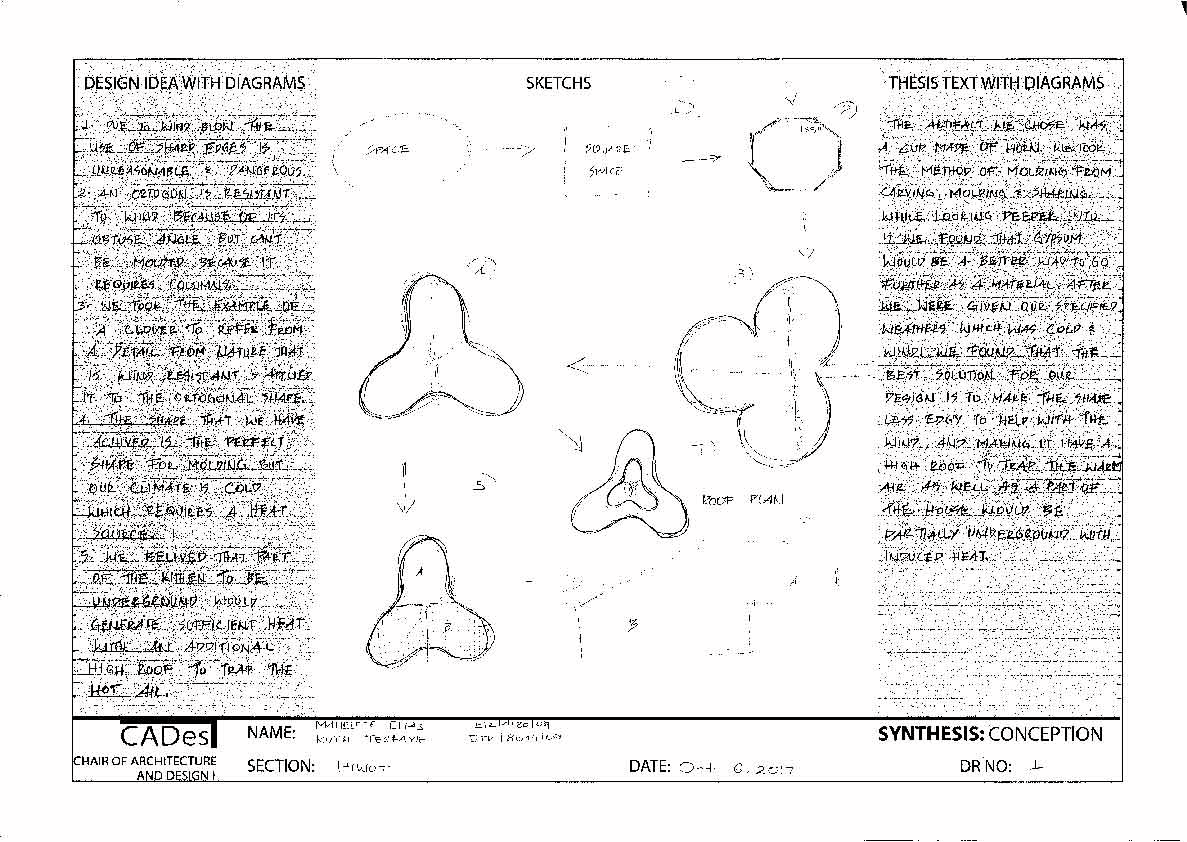 DESIGN IDEA WITH DIAGRAMS
1. DUE TO WIND BLOW THE
USE OF SHARP EDGES IS
UNREASONABLE & DANGEROUS.
2. AN OCTOGON IS RESISTANT
TO WIND BECAUSE OF ITS
OBTUSE ANGLE BUT CANT
BE MOLDED BECAUSE IT
REQUIRES COLUMNS.
3. WE TOOK THE EXAMPLE OF
A CLOVER TO REFER FROM
A DETAIL FROM NATURE THAT
IS WIND RESISTANT & APPLIED
IT TO THE OCTOGONAL SHAPE.
4. THE SHAPE THAT WE HAVE
ACHIVED IS THE PERFECT
SHAPE FOR MOLDING BUT
OUR CLIMATE IS COLD
WHICH REQUIRES A HEAT
SOURCE.
5. WE BELIVED THAT PART
OF THE KITHEN TO BE
UNDERGROUND WOULD
GENERATE SUFFICIENT HEAT
WITH AN ADDITIONAL
HIGH ROOF TO TRAP THE
HOT AIR.
SKETCHS
SPACE
SQUARE
SPACE
1)
2)
135°
3)
4)
5)
ROOF PLAN
A
B
B
THESIS TEXT WITH DIAGRAMS
THE ARTIFACT WE CHOSE WAS
A CUP MADE OF HORN. WE TOOK
THE METHOD OF MOLDING FROM
CARVING, MOLDING & SHAPING.
WHILE LOOKING DEEPER INTO
IT WE FOUND THAT GYPSUM
WOULD BE A BETTER WAY TO GO
FURTHER AS A MATERIAL. AFTER
WE WERE GIVEN OUR SPECIFIED
WEATHERS WHICH WAS COLD &
WINDY WE FOUND THAT THE
BEST SOLUTION FOR OUR
DESIGN IS TO MAKE THE SHAPE
LESS EDGY TO HELP WITH THE
WIND, AND MAKING IT HAVE A
HIGH ROOF TO TRAP THE WARM
AIR AS WELL AS A PART OF
THE HOUSE WOULD BE
PARTIALLY UNDERGROUND WITH
INDUCED HEAT.
CADesI
CHAIR OF ARCHITECTURE
AND DESIGN I
NAME:
SECTION:
DATE: Oct. 6, 2017
SYNTHESIS: CONCEPTION
DR NO: 1